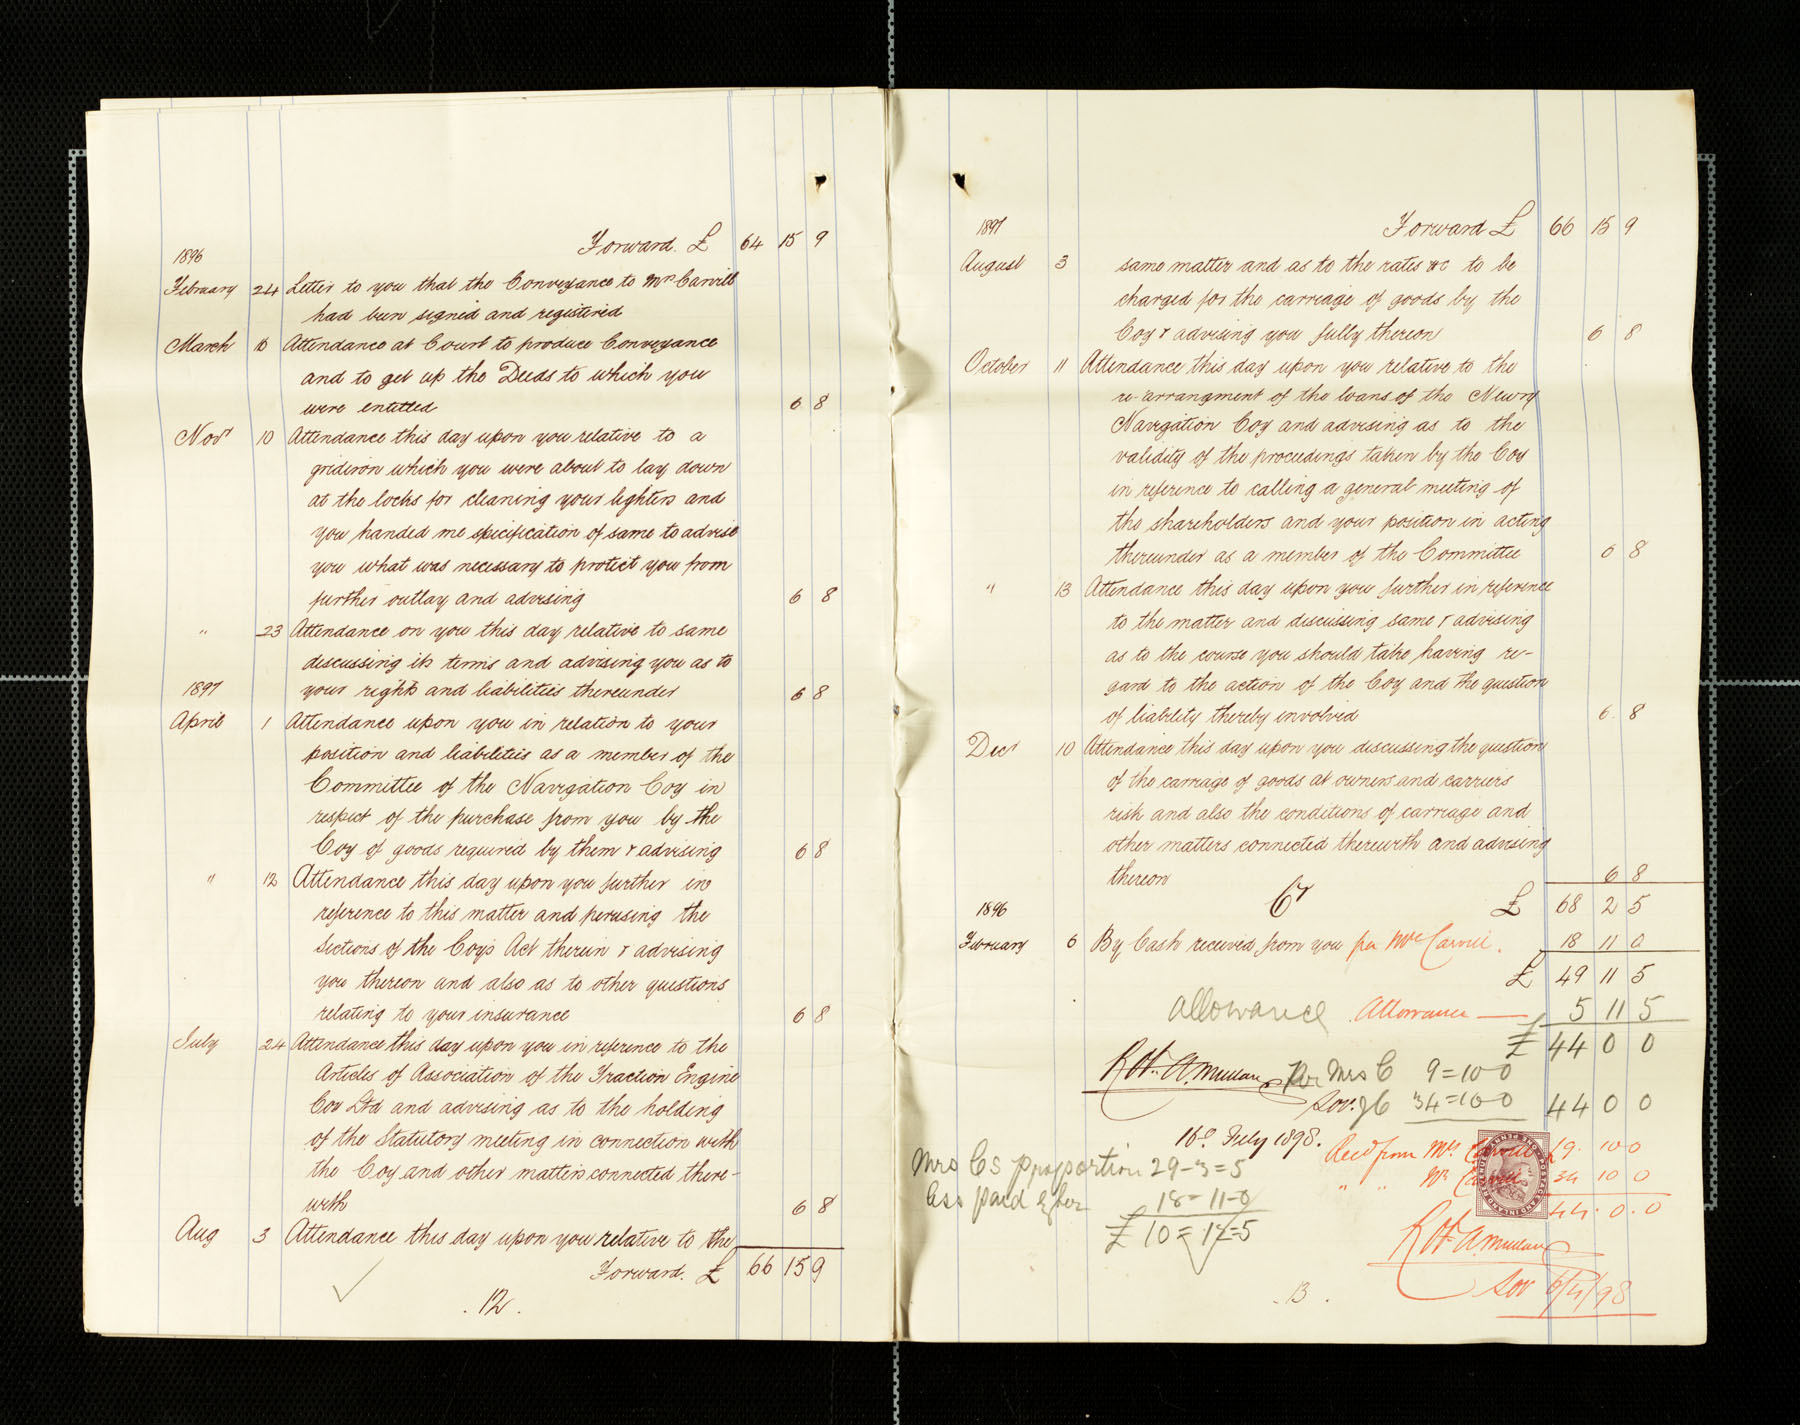 Forward. £ 64 15 9
1896
February 24 Letter to you that the Conveyance to Mrs Carvill
had been signed and registered
March 16 Attendance at Court to produce Conveyance
and to get up the Deeds to which you
were entitled 6 8
Novr 10 Attendance this day upon you relative to a
gridiron which you were about to lay down
at the locks for cleaning your lighters and
you handed me specification of same to advise
you what was necessary to protect you from
further outlay and advising 6 8
" 23 Attendance on you this day relative to same
discussing its terms and advising you as to
1897 your rights and liabilities thereunder 6 8
April 1 Attendance upon you in relation to your
position and liabilities as a member of the
Committee of the Navigation Coy in
respect of the purchase from you by the
Coy of goods required by them & advising 6 8
" 12 Attendance this day upon you further in
reference to this matter and perusing the
Sections of the Coys Act therein & advising
you thereon and also as to other questions
relating to your insurance 6 8
July 24 Attendance this day upon you in reference to the
Articles of Association of the Traction Engine
Coy Ltd and advising as to the holding
of the Statutory meeting in connection with
the Coy and other matters connected there-
with 6 8
Aug 3 Attendance this day upon you relative to the
Forward. £ 66 15 9
. 12 .
1897 Forward £ 66 15 9
August 3 same matter and as to the rates &c to be
charged for the carriage of goods by the
Coy & advising you fully thereon 6 8
October 11 Attendance this day upon you relative to the
re-arrangment of the loans of the Newry
Navigation Coy and advising as to the
validity of the proceedings taken by the Coy
in reference to calling a general meeting of
the shareholders and your position in acting
thereunder as a member of the Committee 6 8
" 13 Attendance this day upon you further in reference
to the matter and discussing same & advising
as to the course you should take having re-
gard to the action of the Coy and the question
of liability thereby involved 6 8
Decr 10 Attendance this day upon you discussing the question
of the carriage of goods at owners and carriers
risk and also the conditions of carriage and
other matters connected therewith and advising
thereon 6 8
Cr
1896 £ 68 2 5
February 6 By Cash received from you per Mrs Carvill. 18 11 0
£ 49 11 5
allowance Allowance — 5 11 5
£ 44 0 0
Per Mrs C 9=10-0
34=10-0 44 0 0
16 July 1898.
Recd from Mrs Carvill £9. 10-0
" " Mr Carvill 34 10 0
44.0.0
Mrs Cs proportion 29-3=5
less paid
18=11-0
£10=12=5
. 13 .